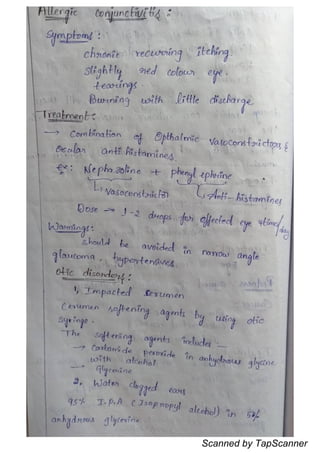 Allergic conjunctivitis :
Symptoms :
chronic recurring itching
slightly red colour eye.
tearings
Burning with little discharge
Treatment :
→ Combination of Opthalmic vasoconstrictors &
Ocular antihistamines
Ex: Nephazoline + phenylephrine
↳ vasoconstrictor ↳ Anti-histamines
Dose → 1-2 drops for affected eye 4time/day
Warnings:
should be avoided in narrow angle
glaucoma, hypertensives
Otic disorders :
1, Impacted cerumen
Cerumen softening agents by using otic
syringe.
The softening agents includes —
→ Carbamide peroxide in anhydrous glycine
with alcohol
→ Glycerine
2. Water clogged ears
95% I.P.A (Isopropyl alcohol) in 5%
anhydrous glycerine
Scanned by TapScanner